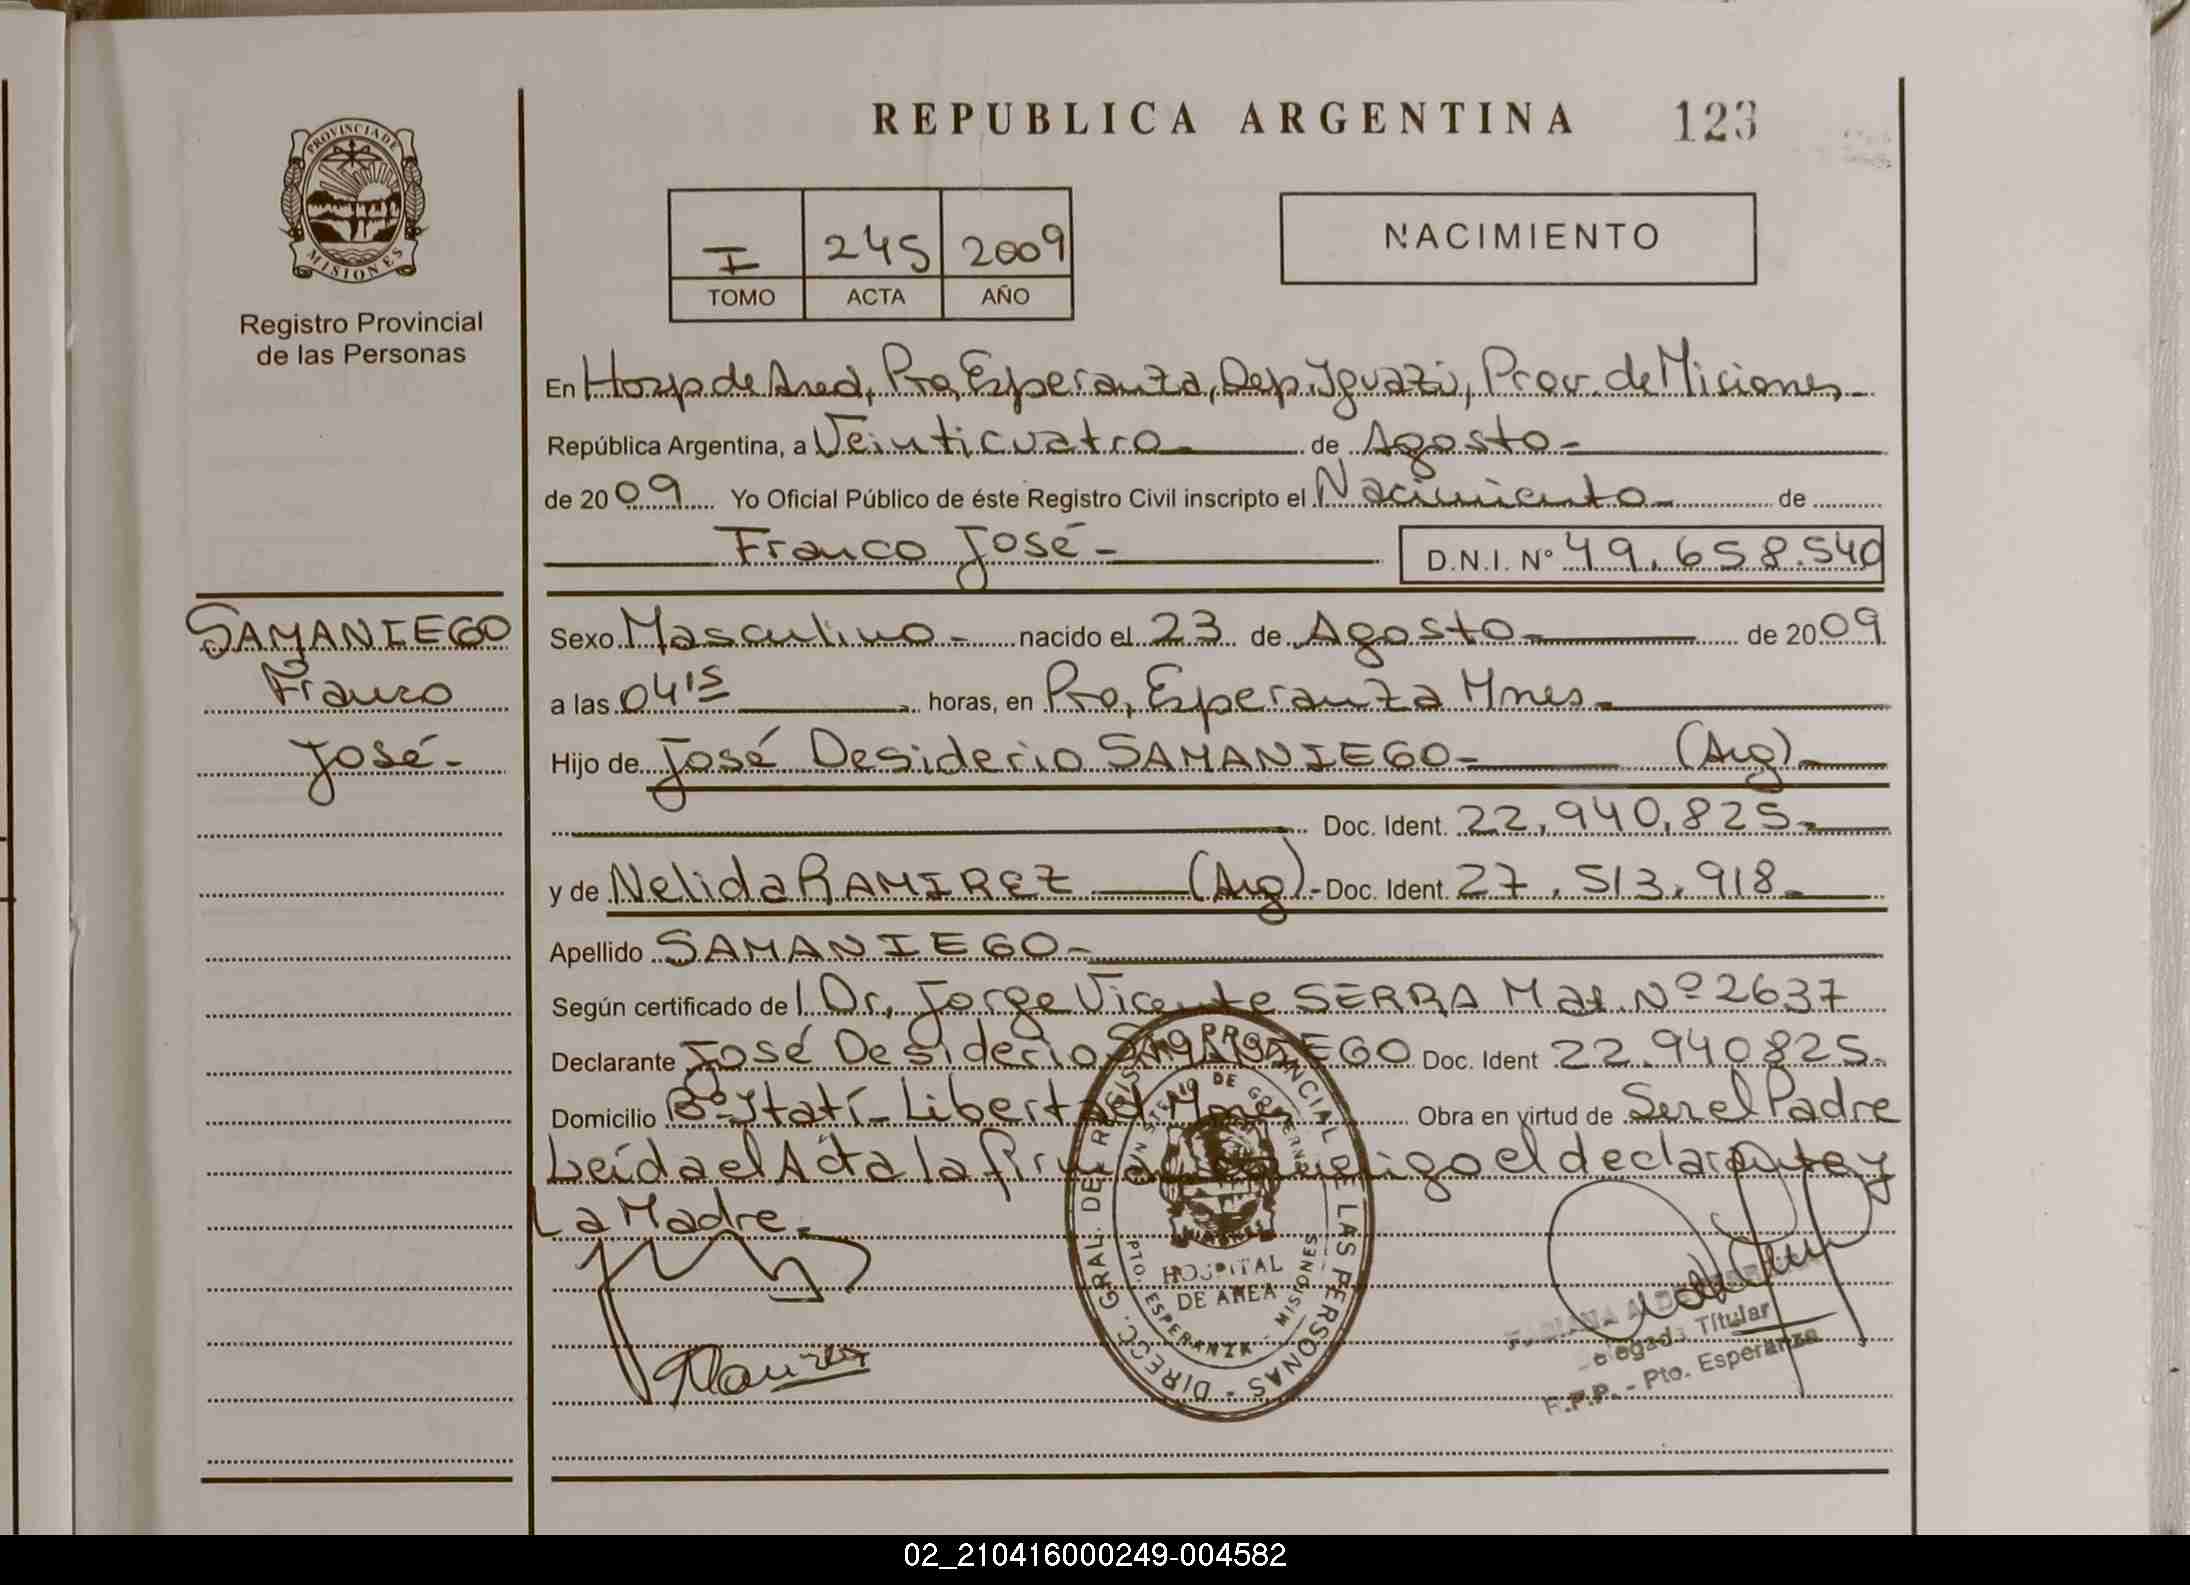 REPUBLICA ARGENTINA 123
PROVINCIA DE
MISIONES
Registro Provincial
de las Personas
I 245 2009
TOMO ACTA AÑO
NACIMIENTO
En Hosp de Area, Pto, Esperanza, Dep. Iguazú, Prov. de Misiones,
República Argentina, a Veinticuatro de Agosto
de 2009 Yo Oficial Público de éste Registro Civil inscripto el Nacimiento de
Franco José - D.N.I. Nº 49.658.540
SAMANIEGO
Franco
José -
Sexo Masculino - nacido el 23 de Agosto - de 2009
a las 04 15 horas, en Pto, Esperanza Mnes.
Hijo de José Desiderio SAMANIEGO - (Arg) -
Doc. Ident. 22.940.825 -
y de Nelida RAMIREZ (Arg) - Doc. Ident. 27.513.918 -
Apellido SAMANIEGO -
Según certificado de l Dr. Jorge Vicente SERRA Mat. Nº 2637
Declarante José Desiderio SAMANIEGO Doc. Ident 22.940825 -
Domicilio Bº Itatí - Libertad Mnes Obra en virtud de Ser el Padre
Leída el Acta la firman conmigo el declarante y
La Madre -
DIRECC. GRAL. DEL REGISTRO PROVINCIAL DE LAS PERSONAS
MINISTERIO DE GOBIERNO
HOSPITAL
DE AREA
PTO. ESPERANZA - MISIONES
Titular
R.P.P. - Pto. Esperanza
02_210416000249-004582